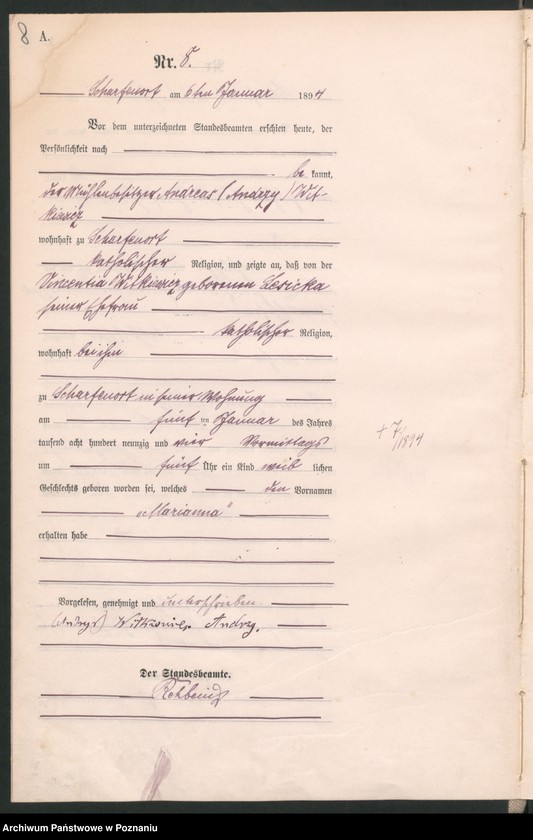 8 A.
Nr. 8.
Scharfenort am 6ten Januar 1894
Vor dem unterzeichneten Standesbeamten erschien heute, der
Persönlichkeit nach
be kannt,
der Mühlenbesitzer Andreas (Andrzy) Wit-
kiewicz
wohnhaft zu Scharfenort
katholischer Religion, und zeigte an, daß von der
Vincentia Witkiewicz geborenen Lesicka
seiner Ehefrau
katholischer Religion,
wohnhaft bei ihm
zu Scharfenort in seiner Wohnung
am fünf ten Januar des Jahres
tausend acht hundert neunzig und vier Vormittags
um fünf Uhr ein Kind weib lichen
Geschlechts geboren worden sei, welches den Vornamen
„Marianna"
erhalten habe
Vorgelesen, genehmigt und unterschrieben
Andrz.
Der Standesbeamte.
+ 7/1894
Archiwum Państwowe w Poznaniu